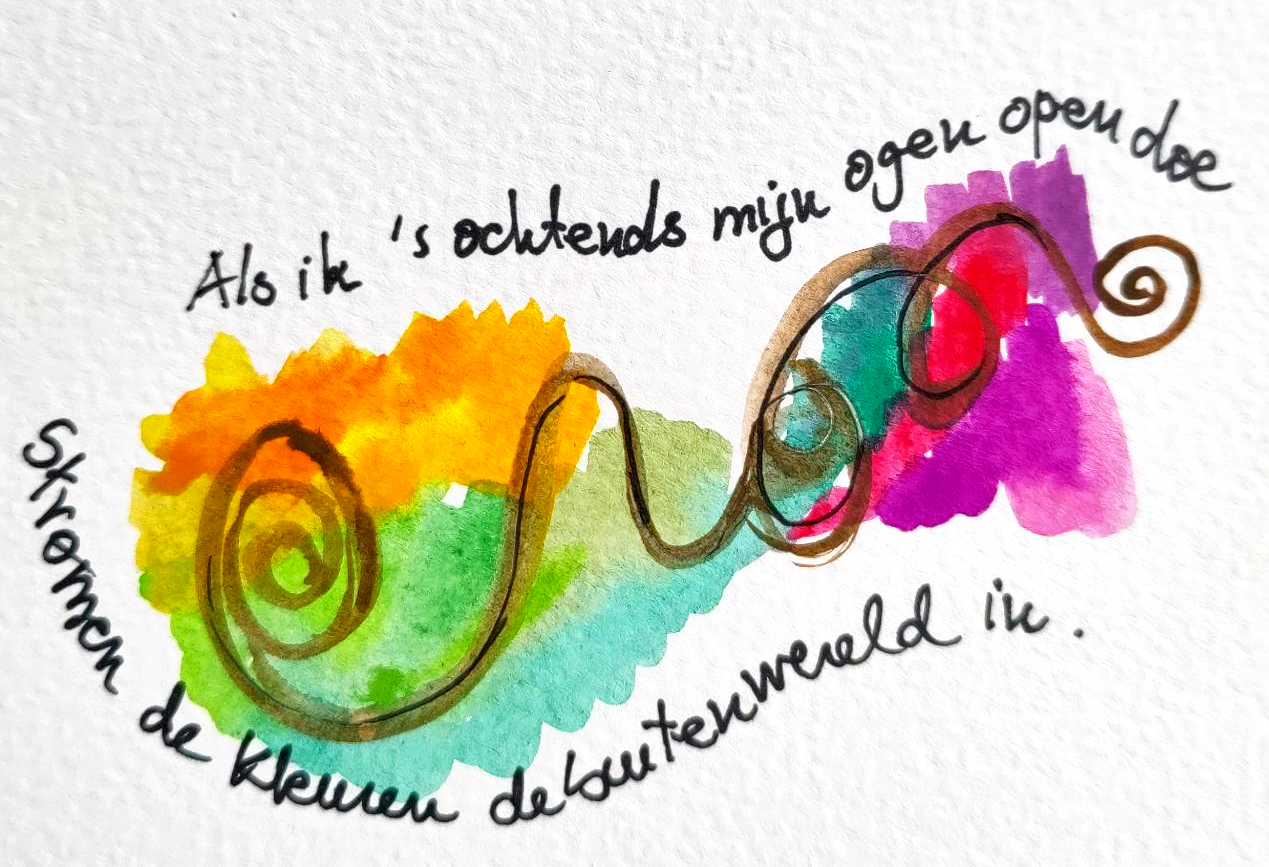 Als ik 's ochtends mijn ogen open doe
Stromen de kleuren de buitenwereld in.